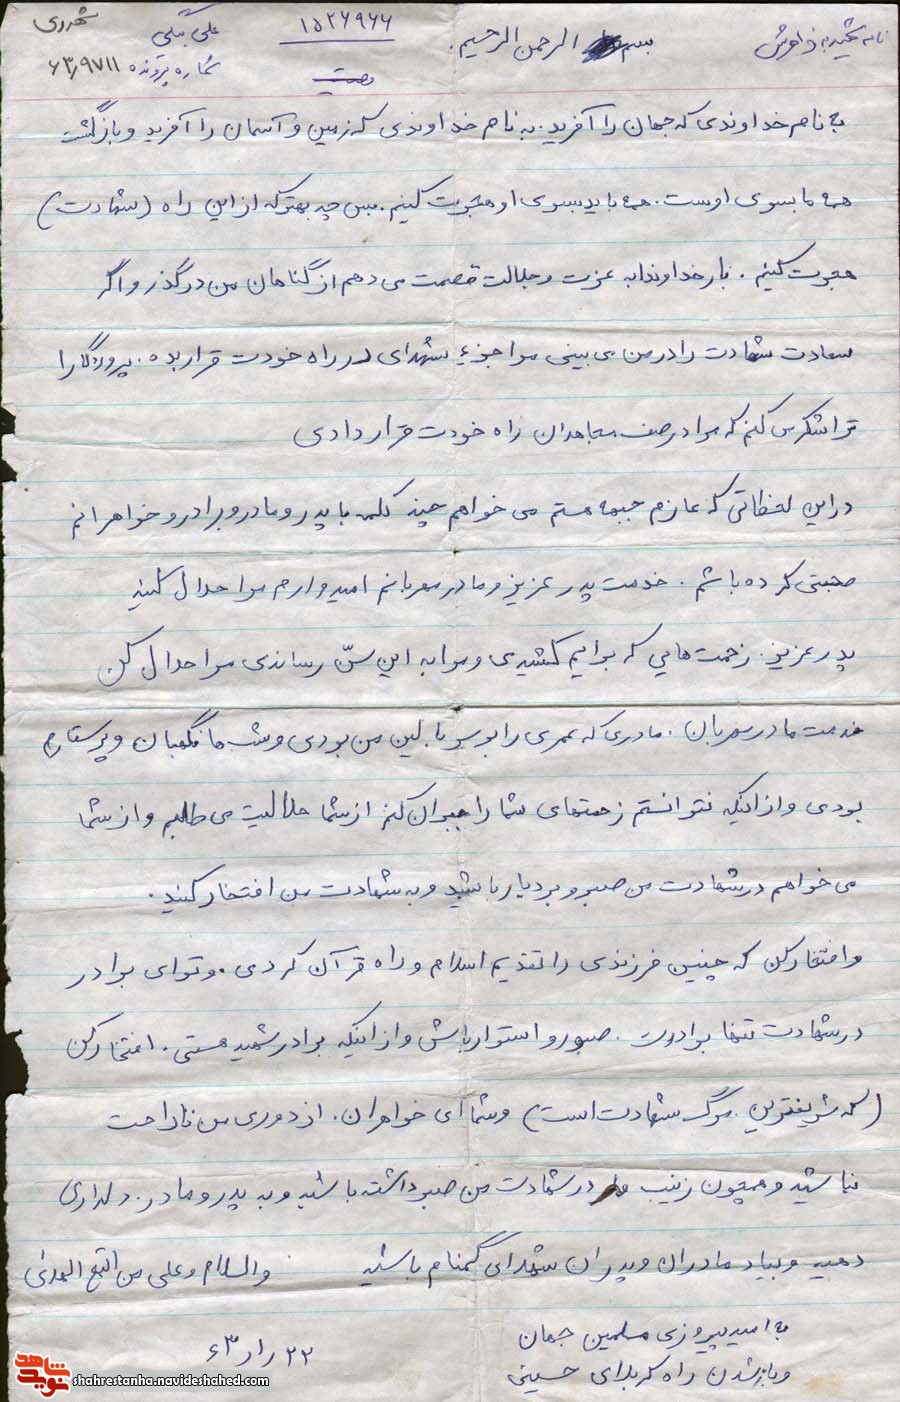 نامه شهید به خواهرش
بسم الرحمن الرحیم.
۱۵۲۶۹۶۶
علی بیگی
شهرری
شماره پرونده ۶۳/۹۷۱۱
وصیت
به نام خداوندی که جهان را آفرید. به نام خداوندی که زمین و آسمان را آفرید و بازگشت
همه ما بسوی اوست. همه باید بسوی او هجرت کنیم. پس چه بهتر که از این راه (شهادت)
هجرت کنیم. بار خداوندا به عزت و جلالت قصمت می دهم از گناهان من درگذر و اگر
سعادت شهادت را در من می بینی مرا جزء شهدای در راه خودت قرار بده. پروردگارا
ترا شکر می کنم که مرا در صف مجاهدان راه خودت قرار دادی
در این لحظاتی که عازم جبهه هستم می خواهم چند کلمه با پدر و مادر و برادر و خواهرانم
صحبتی کرده باشم. خدمت پدر عزیز و مادر مهربانم امیدوارم مرا حلال کنید
پدر عزیز. زحمت هایی که برایم کشیدی و مرا به این سنّ رساندی مرا حلال کن
خدمت مادر مهربان. مادری که عمری را بر سر بالین من بودی و شب ها نگهبان و پرستارم
بودی و از اینکه نتوانستم زحمتهای شما را جبران کنم از شما حلالیت می طلبم و از شما
می خواهم در شهادت من صبر و بردبار باشید و به شهادت من افتخار کنید.
و افتخار کن که چنین فرزندی را تقدیم اسلام و راه قرآن کردی. و تو ای برادر
در شهادت تنها برادرت. صبور و استوار باش و از اینکه برادر شهید هستی. افتخار کن
(که شریفترین مرگ شهادت است) و شما ای خواهران. از دوری من ناراحت
نباشید و همچون زینب در شهادت من صبر داشته باشید و به پدر و مادر. دلداری
دهید و بیاد مادران و پدران شهدای گمنام باشید والسلام و علی من التبع الهدی
به امید پیروزی مسلمین جهان
و باز شدن راه کربلای حسینی
۲۲ ر ار ۶۳
شاهد
نوید
shahrestanha.navideshahed.com